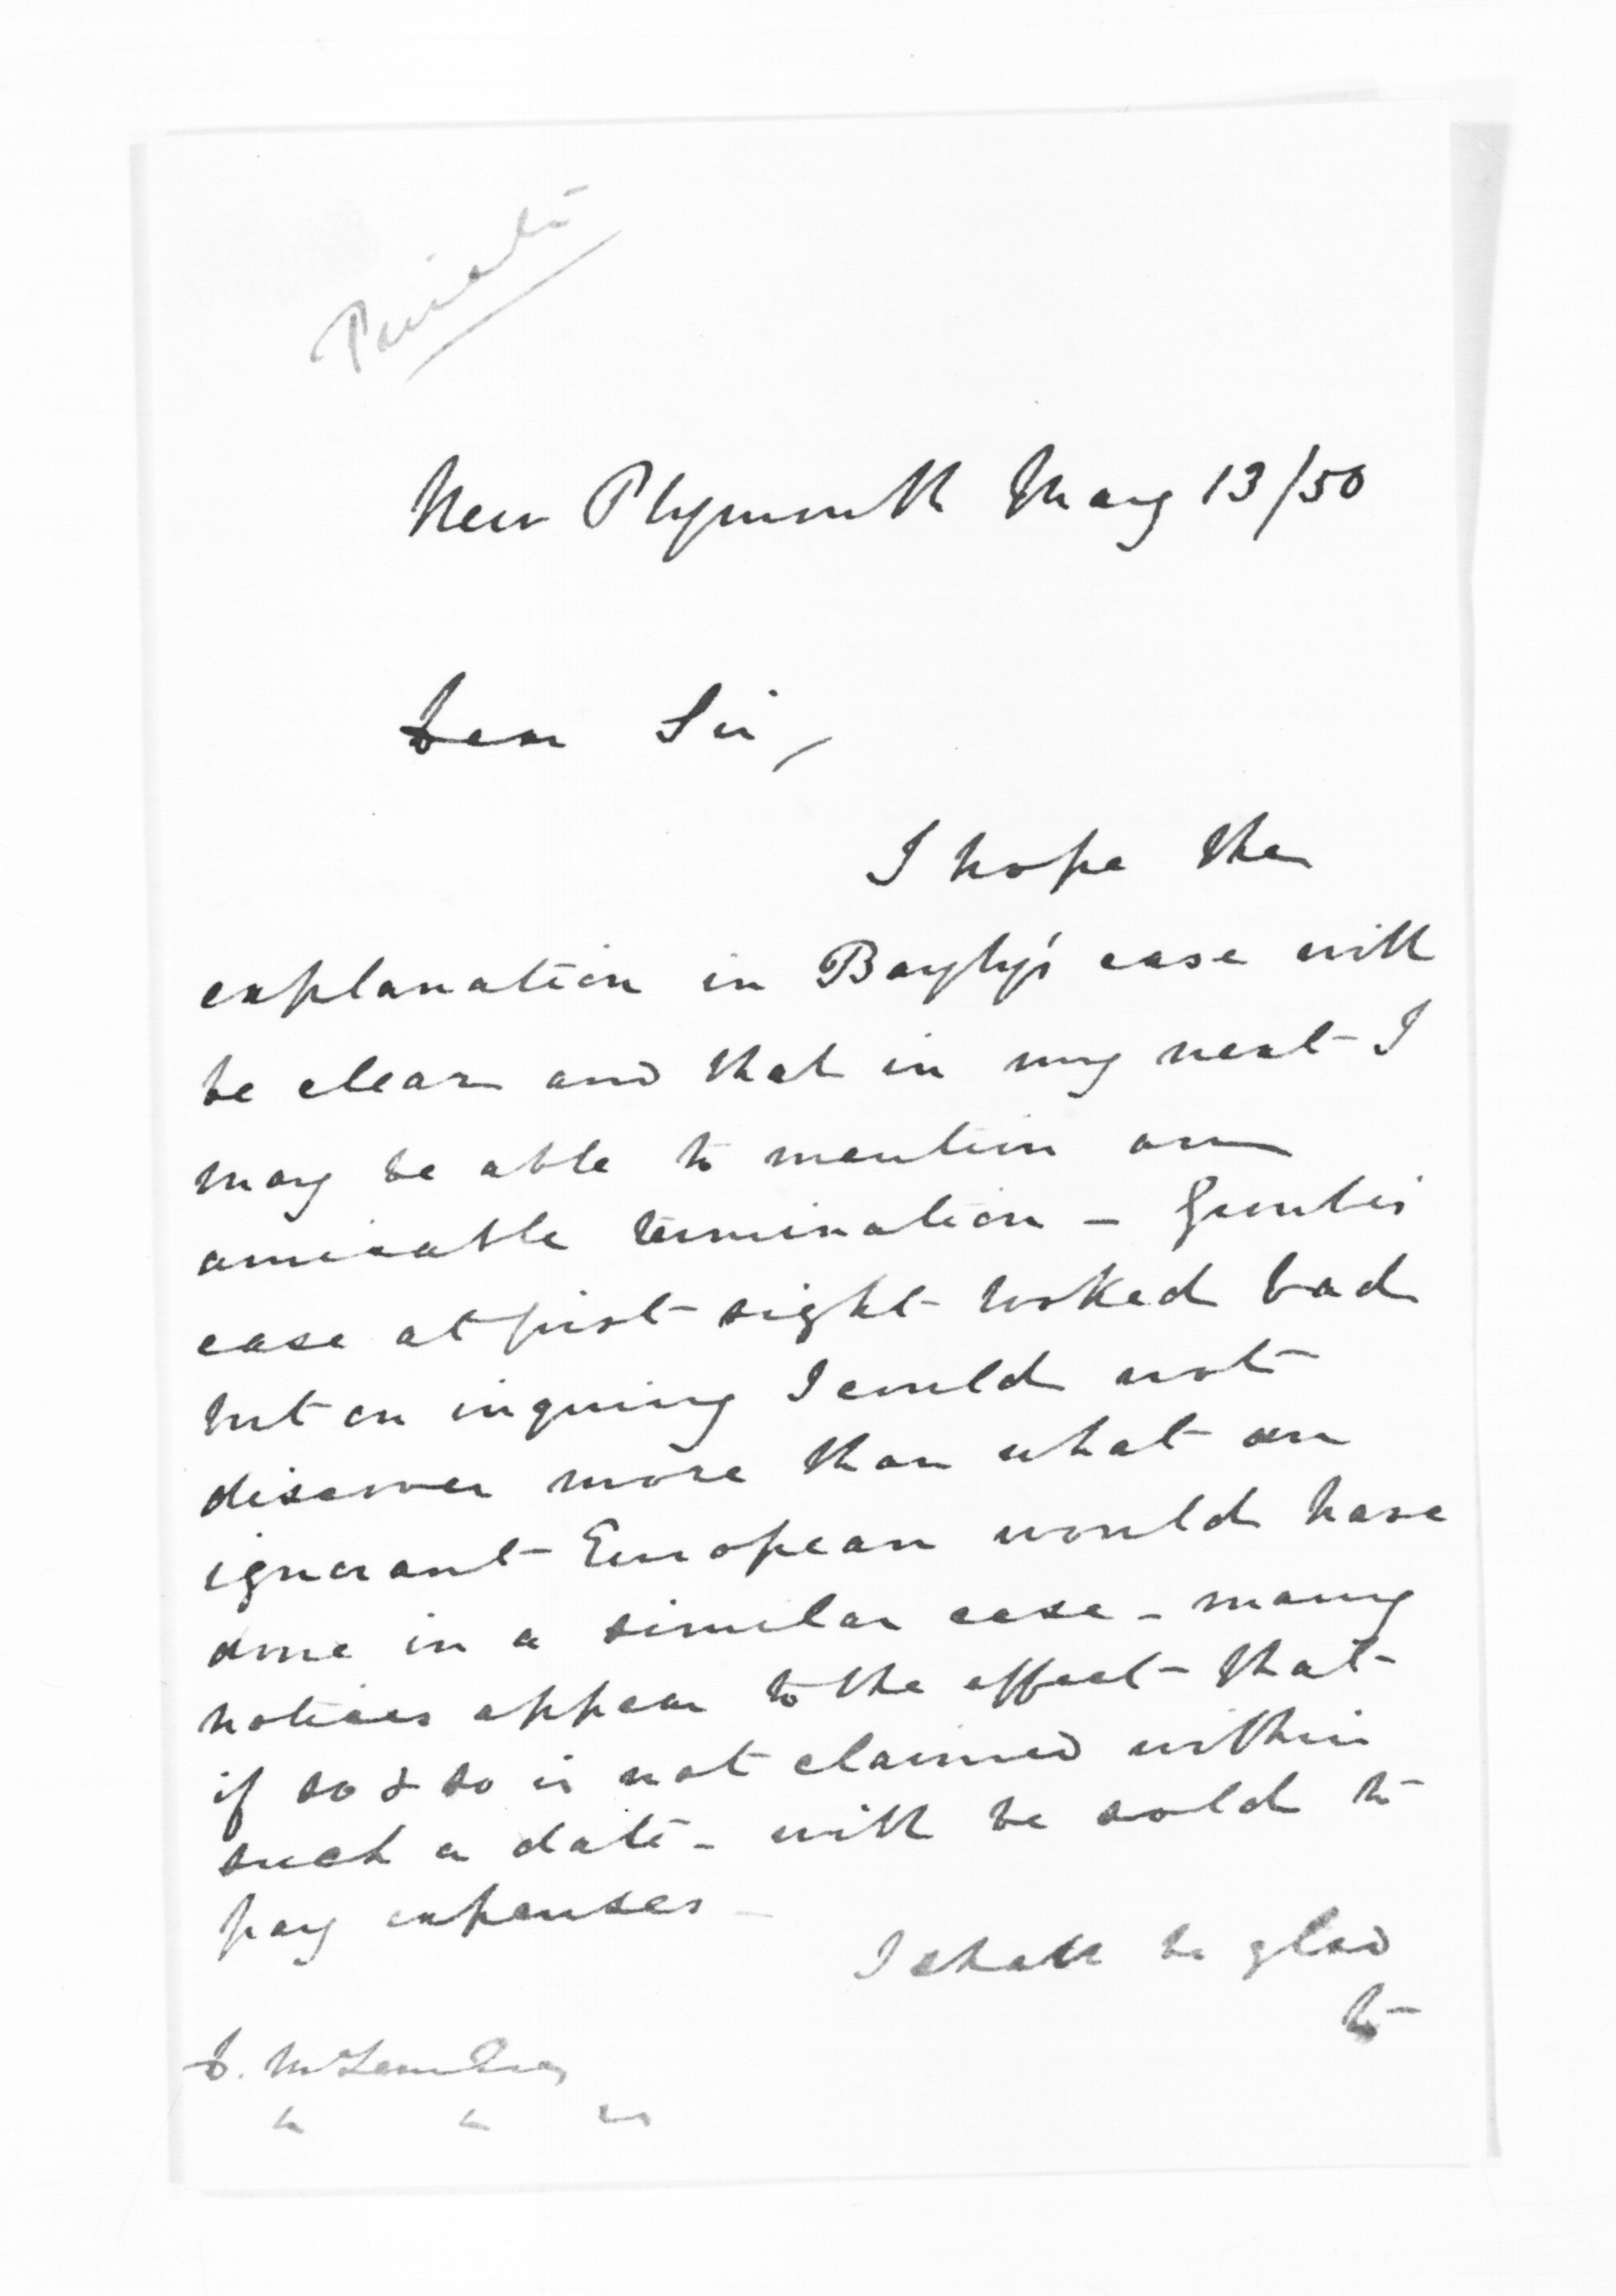 Private
New Plymouth May 13/50
Dear Sir,
I hope the
explanation in Bayly's case will
be clear and that in my next I
may be able to mention an
amicable termination —
case at first sight looked bad
but on inquiring I could not
discover more than what an
ignorant European would have
done in a similar case — many
notices appear to the effect that
if so & so is not claimed within
such a date — will be sold to
pay expenses —
I shall be glad
to
D. McLean Esq
" " "